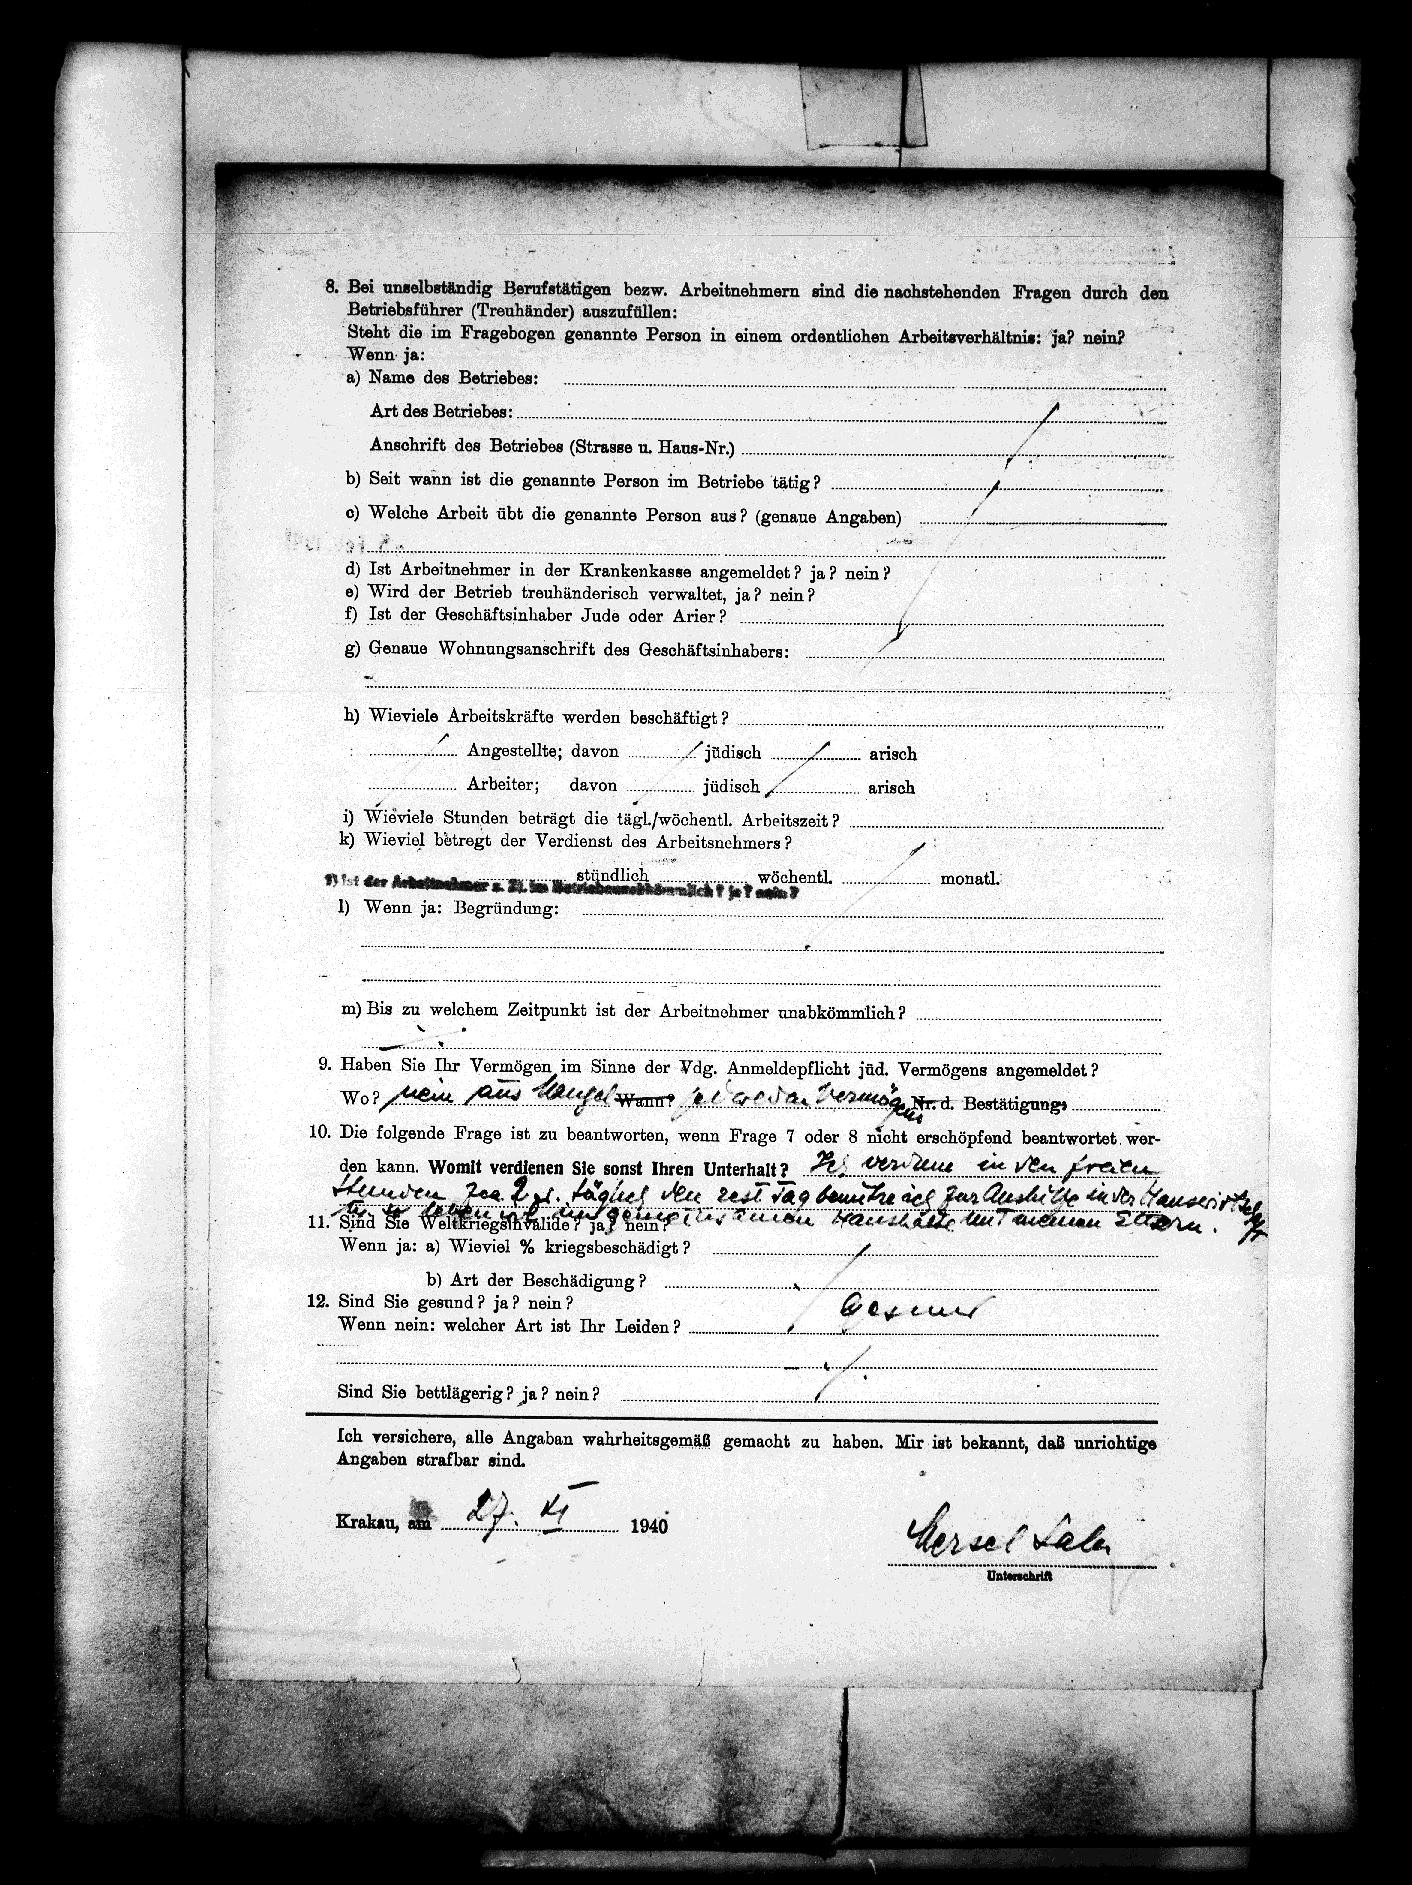 8. Bei unselbständig Berufstätigen bezw. Arbeitnehmern sind die nachstehenden Fragen durch den
Betriebsführer (Treuhänder) auszufüllen:
Steht die im Fragebogen genannte Person in einem ordentlichen Arbeitsverhältnis: ja? nein?
Wenn ja:
a) Name des Betriebes:
Art des Betriebes:
Anschrift des Betriebes (Strasse u. Haus-Nr.)
b) Seit wann ist die genannte Person im Betriebe tätig?
c) Welche Arbeit übt die genannte Person aus? (genaue Angaben)
d) Ist Arbeitnehmer in der Krankenkasse angemeldet? ja? nein?
e) Wird der Betrieb treuhänderisch verwaltet, ja? nein?
f) Ist der Geschäftsinhaber Jude oder Arier?
g) Genaue Wohnungsanschrift des Geschäftsinhabers:
h) Wieviele Arbeitskräfte werden beschäftigt?
Angestellte; davon jüdisch arisch
Arbeiter; davon jüdisch arisch
i) Wieviele Stunden beträgt die tägl./wöchentl. Arbeitszeit?
k) Wieviel betregt der Verdienst des Arbeitsnehmers?
stündlich wöchentl. monatl.
Ist der Arbeitnehmer z. Zt. im Betriebe unabkömmlich? ja? nein?
l) Wenn ja: Begründung:
m) Bis zu welchem Zeitpunkt ist der Arbeitnehmer unabkömmlich?
9. Haben Sie Ihr Vermögen im Sinne der Vdg. Anmeldepflicht jüd. Vermögens angemeldet?
Wo? nein aus Mangel Wann? jedweden Vermögens Nr. d. Bestätigung:
10. Die folgende Frage ist zu beantworten, wenn Frage 7 oder 8 nicht erschöpfend beantwortet wer-
den kann. Womit verdienen Sie sonst Ihren Unterhalt? Ich verdiene in den freien
Stunden zca 2 zl. täglich den rest Tag benütze ich zur Aushilfe in der Hauswirtschaft
u. so leben wir im gemeinsamen Haushalte mit meinen Eltern.
11. Sind Sie Weltkriegsinvalide? ja? nein?
Wenn ja: a) Wieviel % kriegsbeschädigt?
b) Art der Beschädigung?
12. Sind Sie gesund? ja? nein? Gesund
Wenn nein: welcher Art ist Ihr Leiden?
Sind Sie bettlägerig? ja? nein?
Ich versichere, alle Angaban wahrheitsgemäß gemacht zu haben. Mir ist bekannt, daß unrichtige
Angaben strafbar sind.
Krakau, am 27. XI 1940
Unterschrift